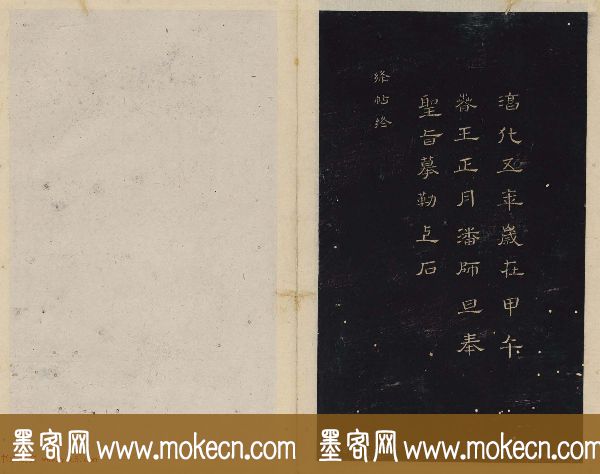 淳化五年歲在甲午
春王正月潘師旦奉
聖旨摹勒上石
絳帖終
墨客网 www.mokecn.com 墨客网 www.mokecn.com